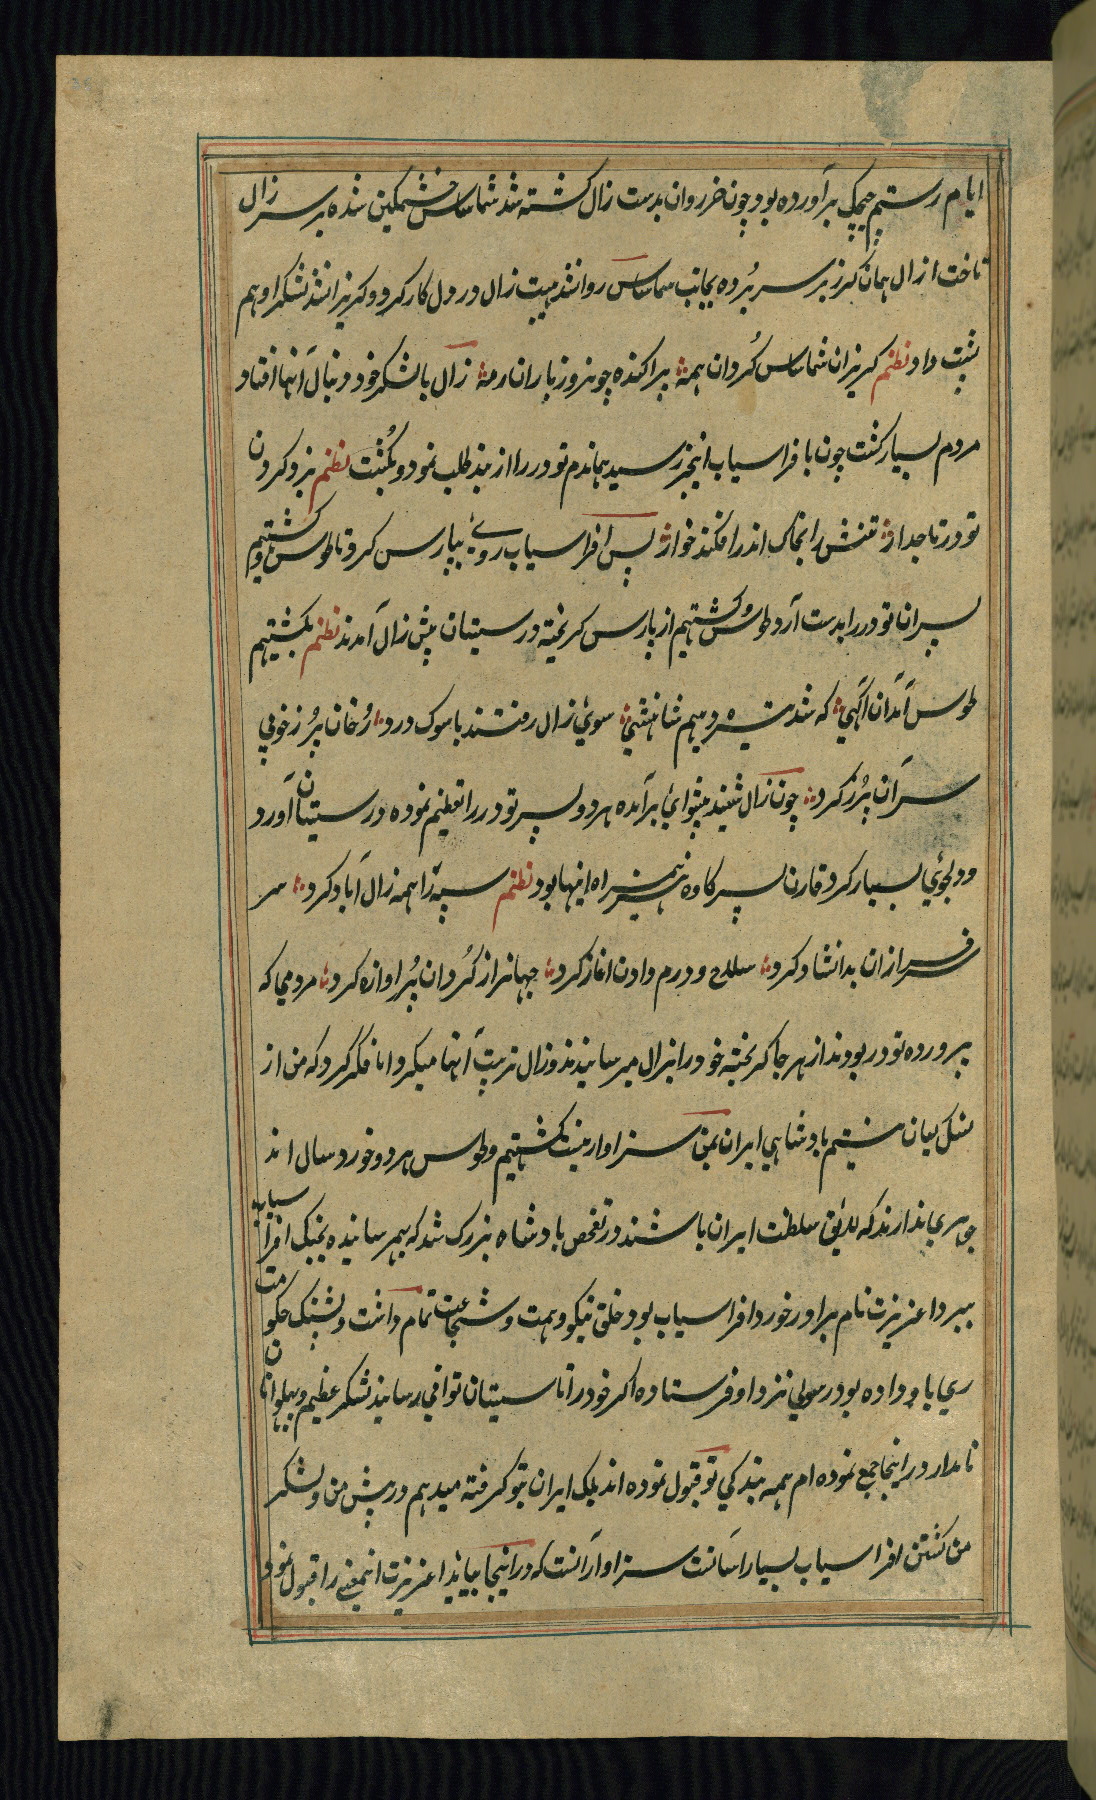 ایام رستم چیچک برآورده بود چون خزروان بدست زال کشته شد شماساس خشمکین شده بر سر زال
تاخت از ال همان کرز بر سر بُرده بجانب شماساس روانشد هیبت زال در دل کار کرد و کریزانشد لشکر او هم
پشت داد نظم کریزان شماساس کُردان همه پراکنده چو نر و ز باران رمه زال با لشکر خود دنبال آنها افتاد
مردم بسیار کشت چون بافراسیاب اینخبر رسید هماندم تودر را از بند طلب نمود و بکُشت نظم بزد کردن
تودر تاجدار تنش را بخاک اندر افکند خوار پس افراسیاب روئے بپارس کرد تا طوس و کشتهم
پسران تودر را بدست آرد طوس و کشتهم از پارس کریخته در سیستان پیش زال آمدند نظم بکشتهم
طوس آمدان آکهی که شد تیره دیهم شاهنشهی سوئ زال رفتند با سوک و درد رُخان پُر ز خون
سرآن پُر ز کرد چون زال شنید پیشوائ برآمده هر دو پسر تودر را تعظیم نموده در سیستان آورد
و دلجوئ بسیار کرد قارن پسر کاوه نیز همراه اینها بود نظم سپه را همه زال آباد کرد سر
سرفرازان بدانشاد کرد سلاح و درم دادن اغاز کرد جهانرا از کُردان پُر اوازه کرد مردمی که
پرورده تودر بودند از هر جا کریخته خود را بزال میرسانیدند و زال تربیت آنها میکرد اما فکر کرد که من از
نسل کیان نیستم بادشاهی ایران بمن سزاوار نیست کشتهم و طوس هر دو خورد سال اند
جوهری ندارند که لایق سلطنت ایران باشند در تفحص بادشاه بزرک شد که بهم رسانیده بجنک افراسیاب
ببرد اغریرت نام برادر خورد افراسیاب بود خلق نیکو و همت و شجاعت تمام داشت و پشنک حکومت
ری باو داده بود رسولی نزد او فرستاده اکر خود را تا سیستان توانی رسانید لشکر عظیم و پهلوانان
نامدار در اینجا جمع نموده ام همه بندکی تو قبول نموده اند ملک ایران بتو کرفته میدهم در پیش من و لشکر
من کشتن افراسیاب بسیار اسانست سزاوار آنست که در اینجا بیائید اغریرت اینمعنی را قبول نمود